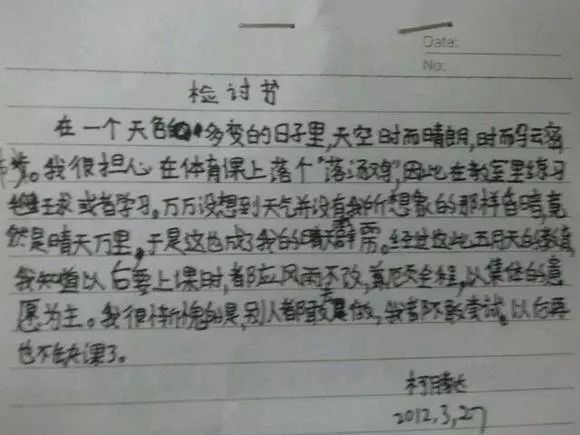 Date:
No:
检讨书
在一个天色多变的日子里,天空时而晴朗,时而乌云密
布。我很担心在体育课上落个"落汤鸡",因此在教室里练习
球或者学习。万万没想到天气并没有我所想象的那样昏暗,竟
然是晴天万里。于是这也成了我的晴天霹雳。经过这此五月天的教育,
我知道以后要上课时,都应风雨不改,冀厄天全程,以集体的意
愿为主。我很惭愧的是,别人都敢做,我都不敢尝试。以后再
也不缺课了。
柯腾达
2012.3.27